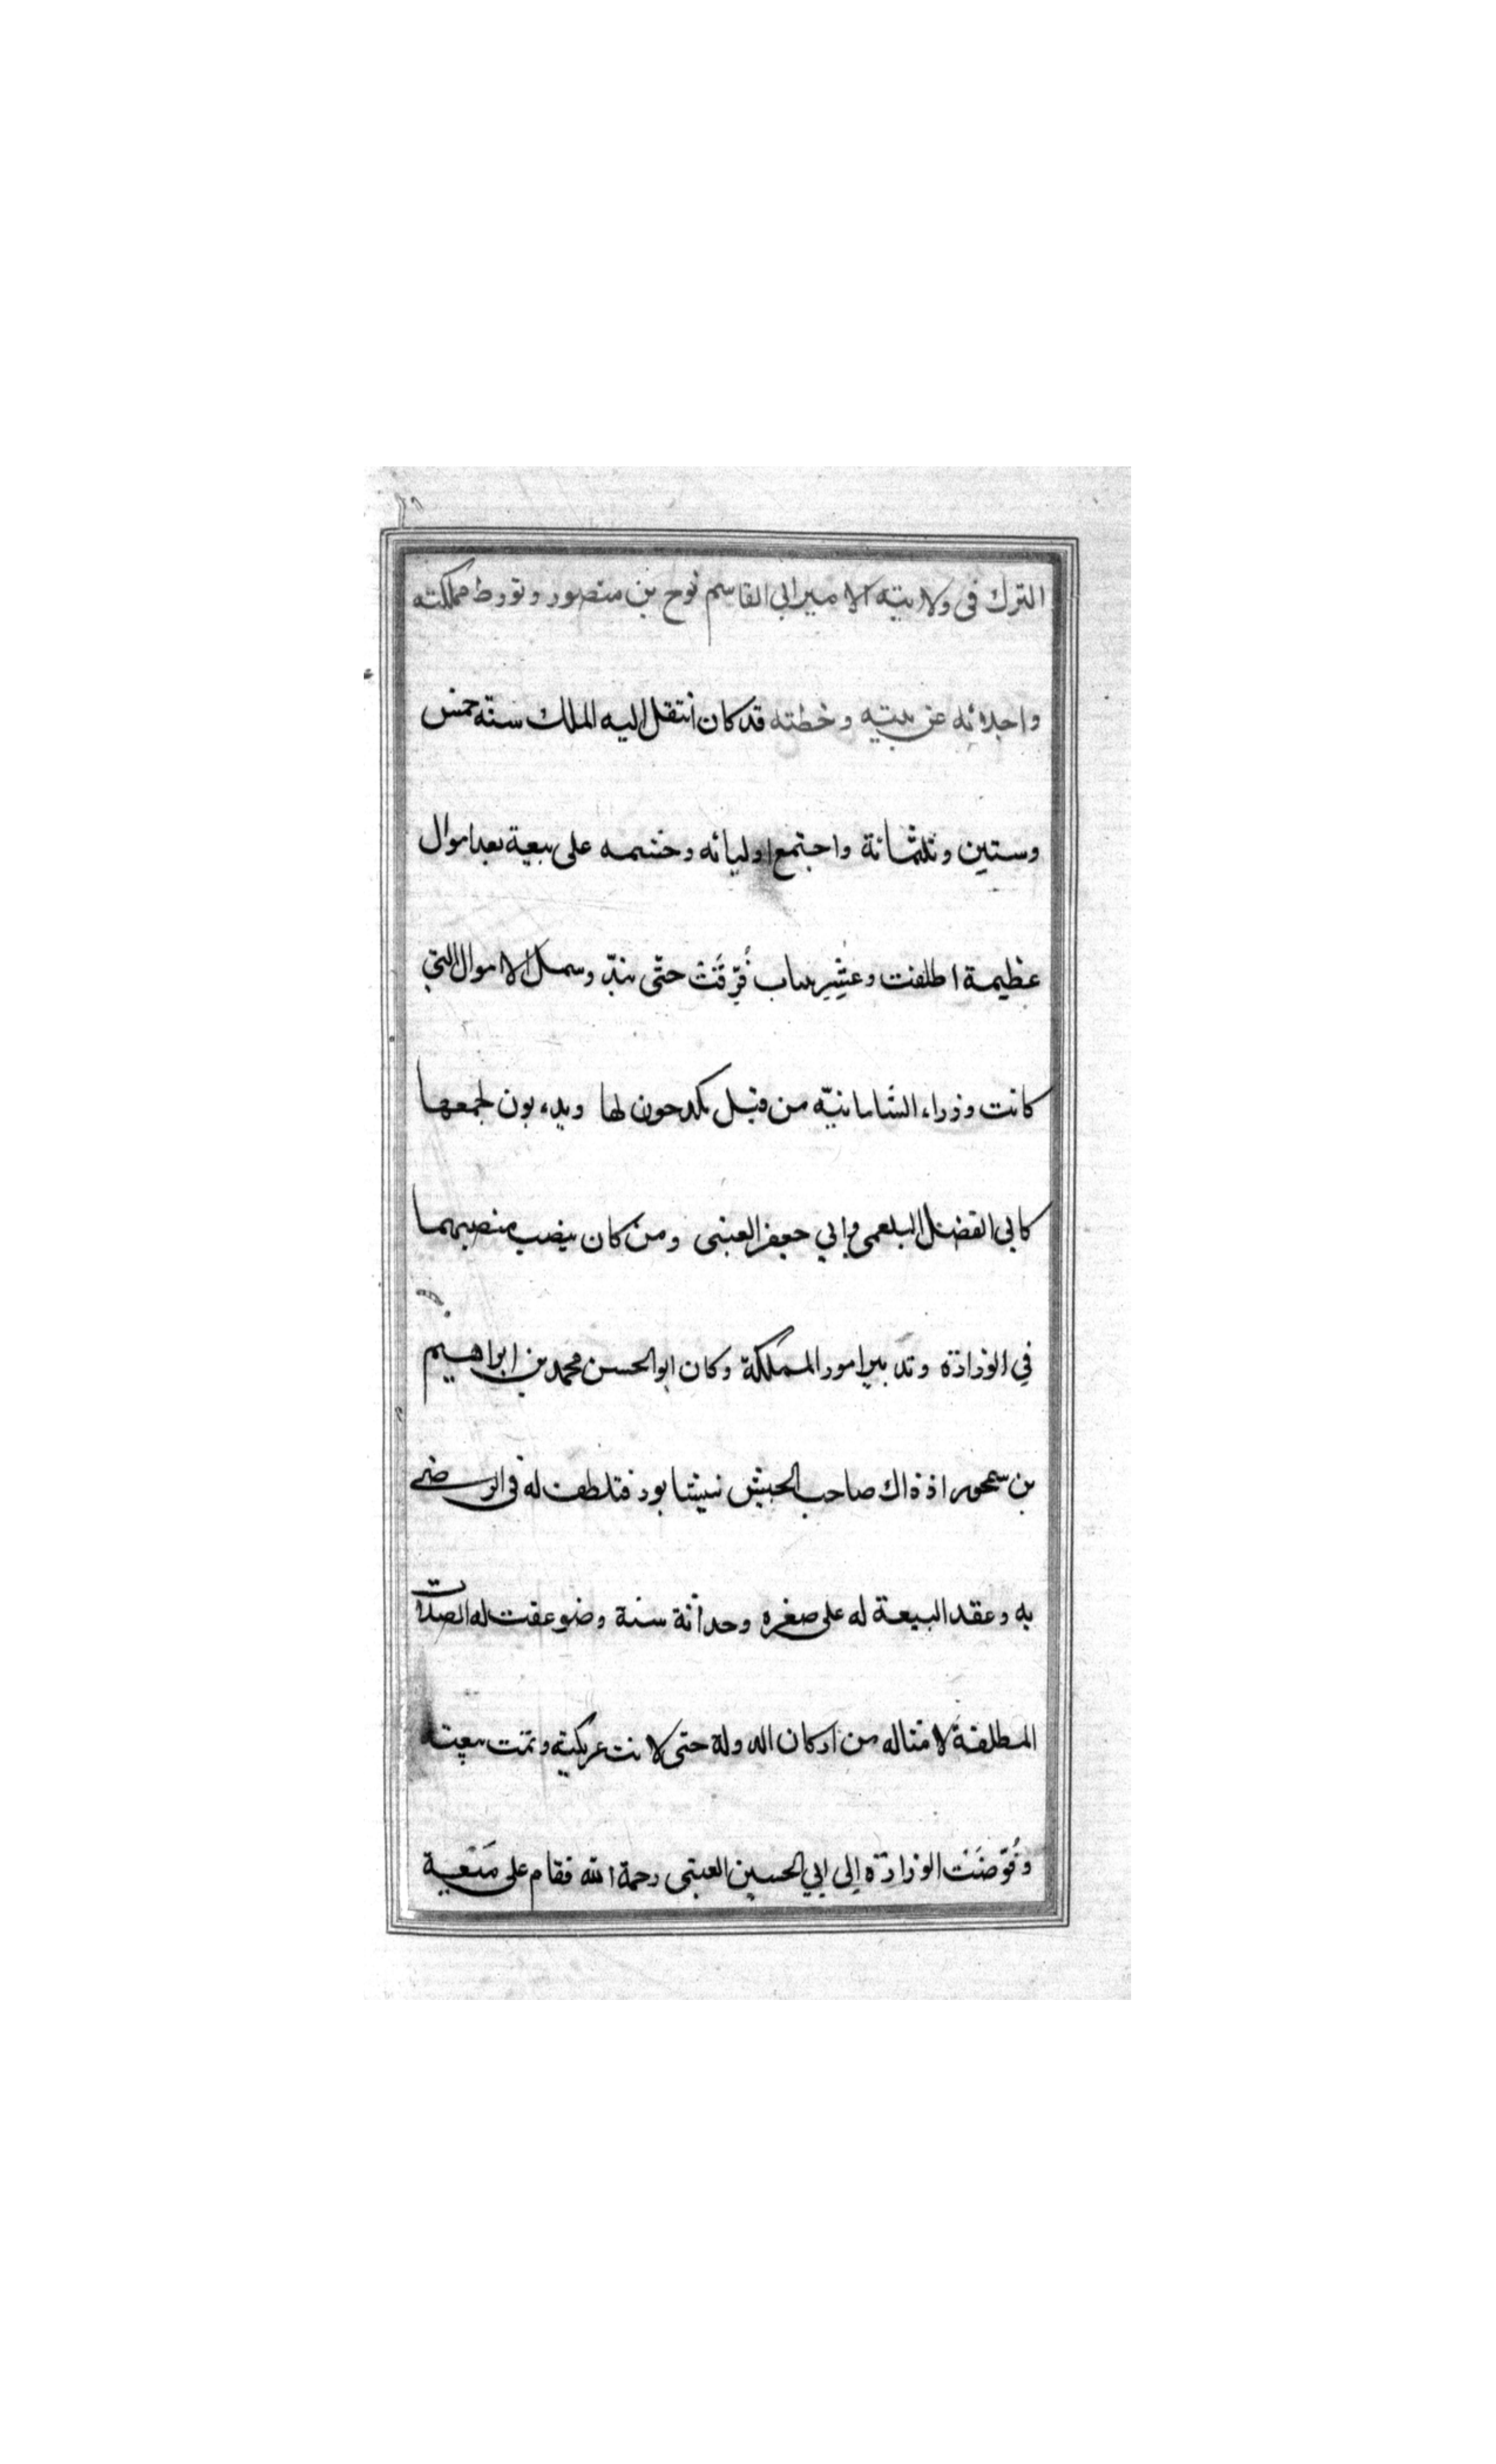 الترك فى ولايته الامير ابي القاسم نوح بن منصور وتورط مملكته
واجلائه عن بيته وخطته قد كان أنتقل اليه الملك سنة خمس
وستين وثلثمائة واجتمع اوليائه وحشمه على بيعة بعد اموال
عظيمة اطلقت و فُرِّقَتْ حتّى الاموال التي
كانت وزراء السّامانيّه من قبل يكدحون لها ويدءبون لجمعها
كابي الفضل البلعمي وابي جعفر العتبى ومن كان ينصب منصبهما
في الوزارة وتدبير امور المملكة وكان ابو الحسن محمد بن ابراهيم
بن سمجور اذ ذاك صاحب الجيش نيشابور فتلطف له فى الرضى
به وعقد البيعة له على صغره وحداثة سنة وضوعفت له الصلات
المطلقة لامثاله من اركان الدولة حتى لانت عريكته وتمّت بيعته
وفُوّضَت الوزارة إلى ابي الحسين العتبى رحمة الله فقام على